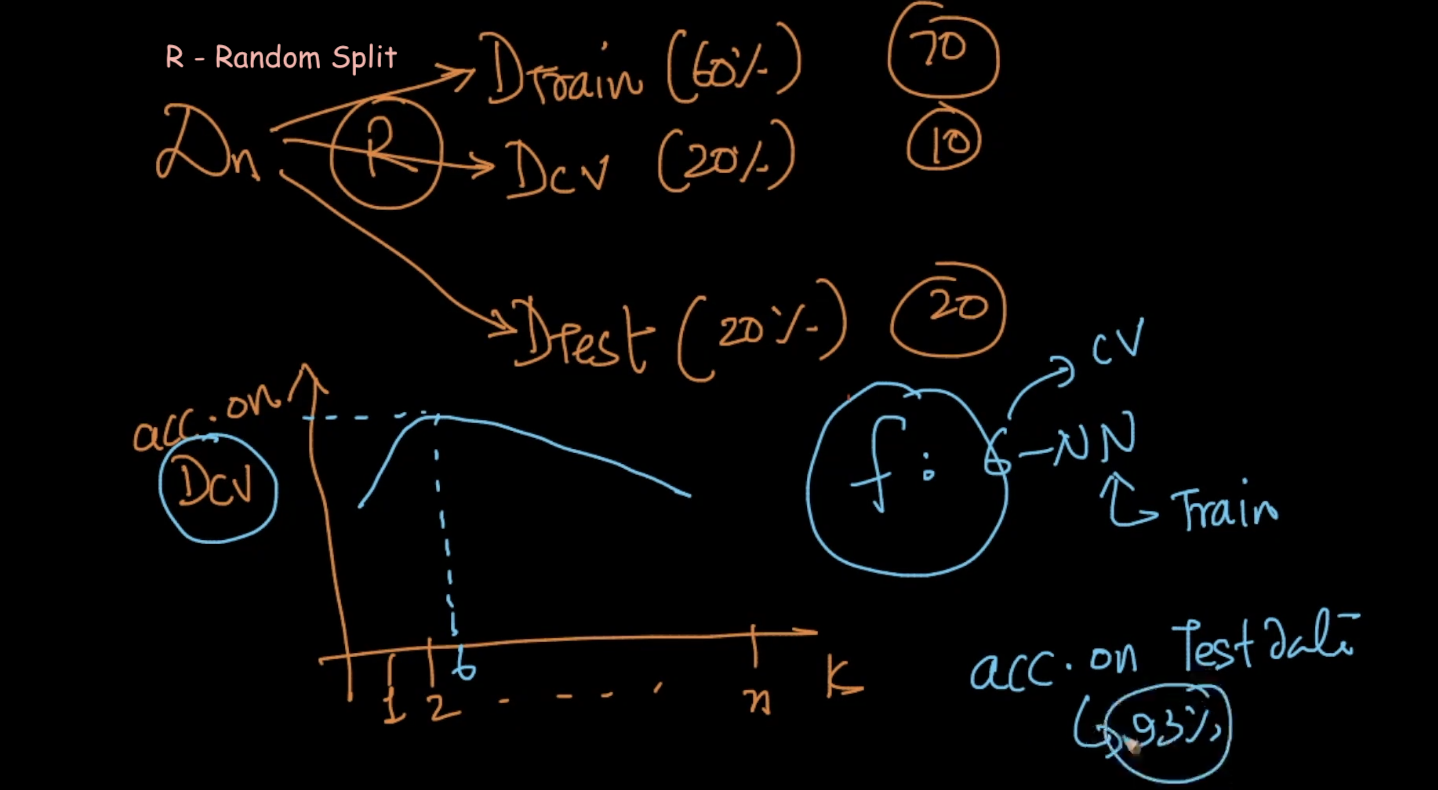 R - Random Split
Dn
R
DTrain (60%)
70
DCV (20%)
10
DTest (20%)
20
acc. on
DCV
1 2 6 - - - . n K
f: 6-NN
CV
Train
acc. on Test Data
93%